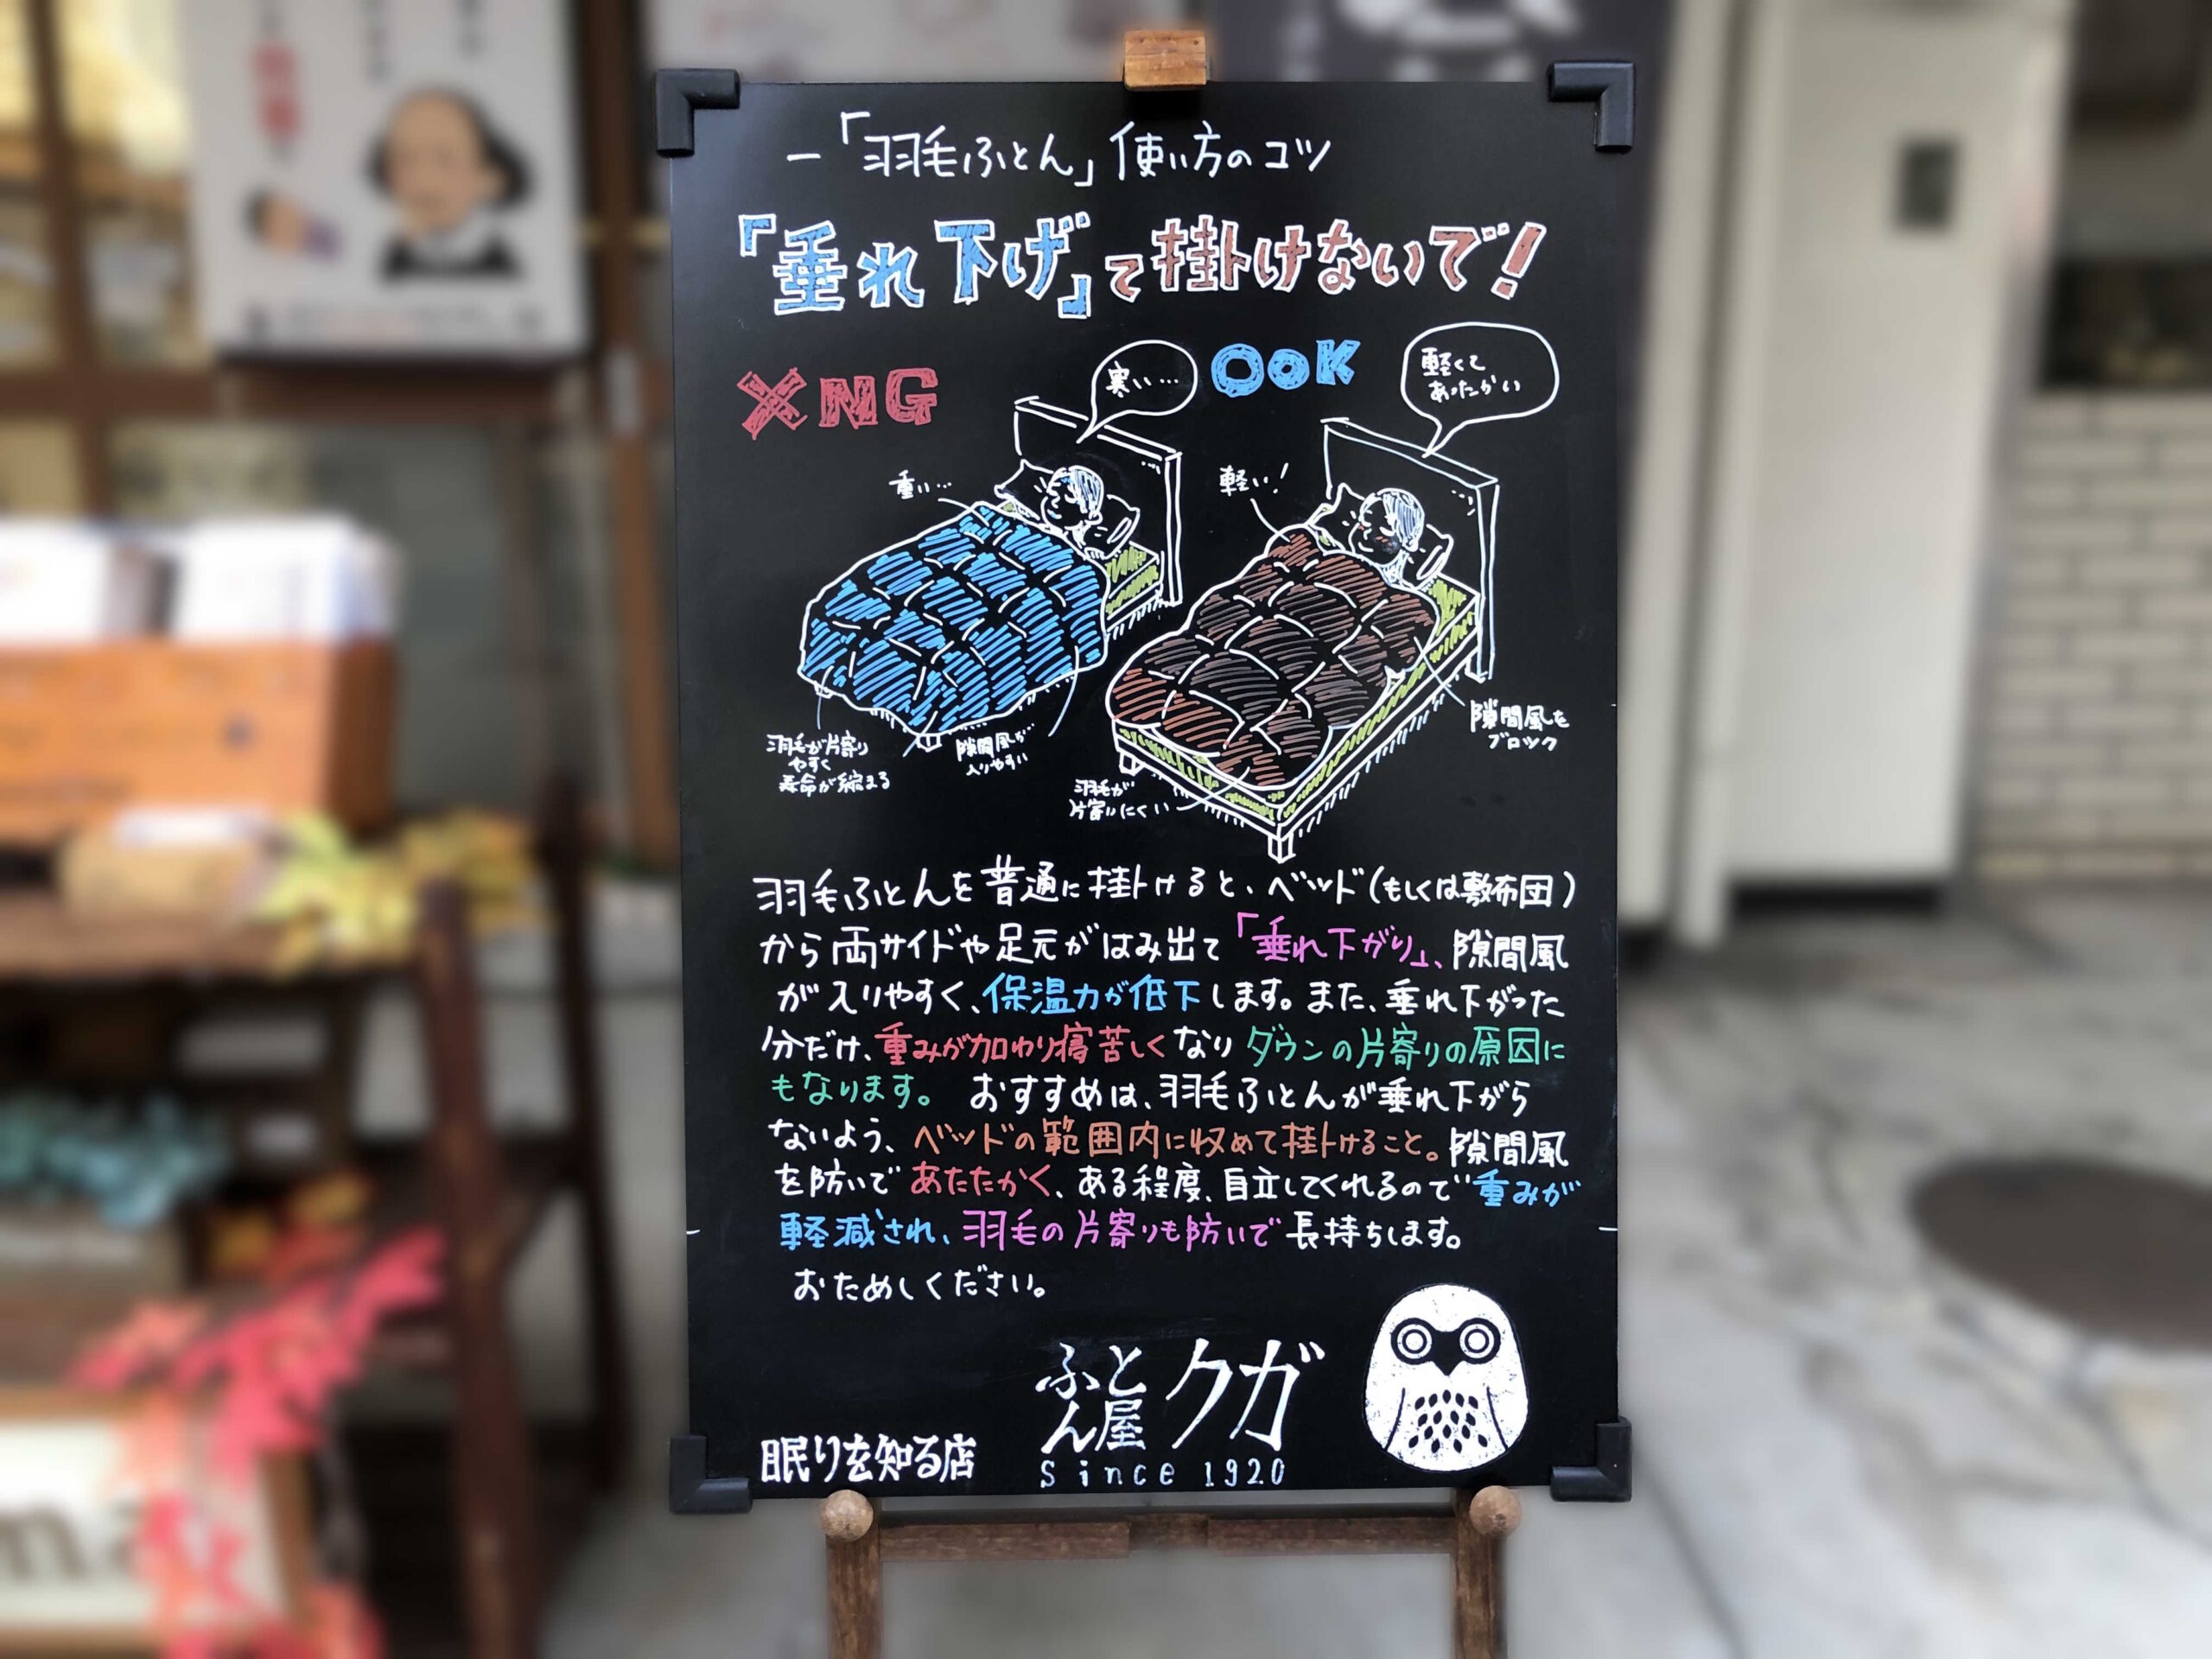 ー「羽毛ふとん」使い方のコツ
『垂れ下げ』て掛けないで!
×NG
寒い…
○OK
軽くて
あったかい
重い…
軽い!
羽毛が片寄り
やすく
寿命が縮まる
隙間風が
入りやすい
羽毛が
片寄りにくい
隙間風を
ブロック
羽毛ふとんを普通に掛けると、ベッド(もしくは敷布団)
から両サイドや足元がはみ出て「垂れ下がり」、隙間風
が入りやすく、保温力が低下します。また、垂れ下がった
分だけ、重みが加わり寝苦しくなりダウンの片寄りの原因に
もなります。 おすすめは、羽毛ふとんが垂れ下がら
ないよう、ベッドの範囲内に収めて掛けること。隙間風
を防いであたたかく、ある程度、自立してくれるので重みが
軽減され、羽毛の片寄りも防いで長持ちします。
おためしください。
眠りを知る店
ふとん屋クガ
Since 1920